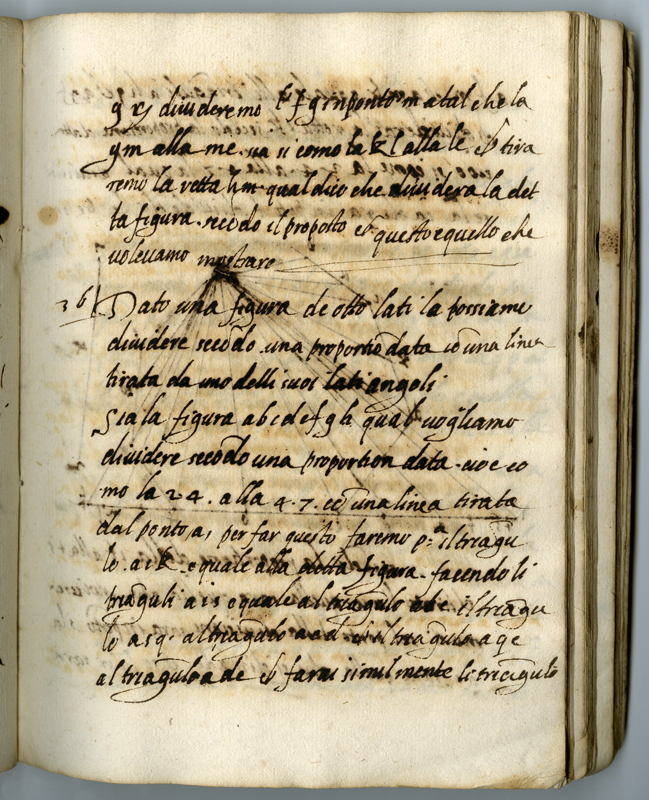 g ry divideremo fg in ponto m a tal che la
gm alla me. va si como la kl alla le. et tira
remo la retta hm. qual dico che dividera la det
ta figura. secōdo il proposto et questo e quello che
volevamo mostrare
36 Dato una figura de otto lati la possiamo
dividere secōdo una proportiō data cō una linea
tirata da uno delli suoi lati angoli
Sia la figura abcdefgh qual vogliamo
dividere secōdo una proportion data. cioe co
mo la 24. alla 47. cō una linea tirata
dal ponto a, per far questo faremo p.a il triāgu
lo. aik. equale alla detta figura. facendo li
triāguli ais equale al triāgulo abc. il triāgu
lo asq. al triāgulo acd. et il triāgulo aqe
al triāgulo ade et farai similmente li triāguli